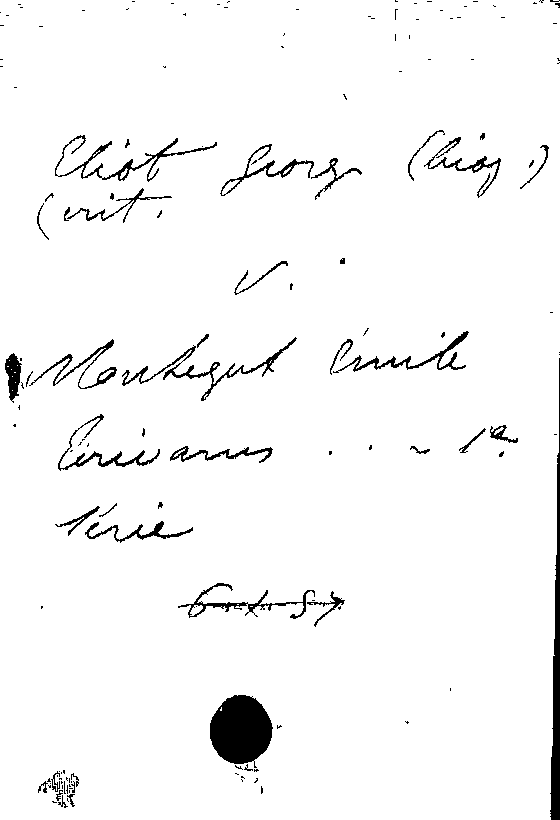 Eliot George (biog.)
(crit.
V.
Montégut Émile
Écrivains . . . 1e
Série